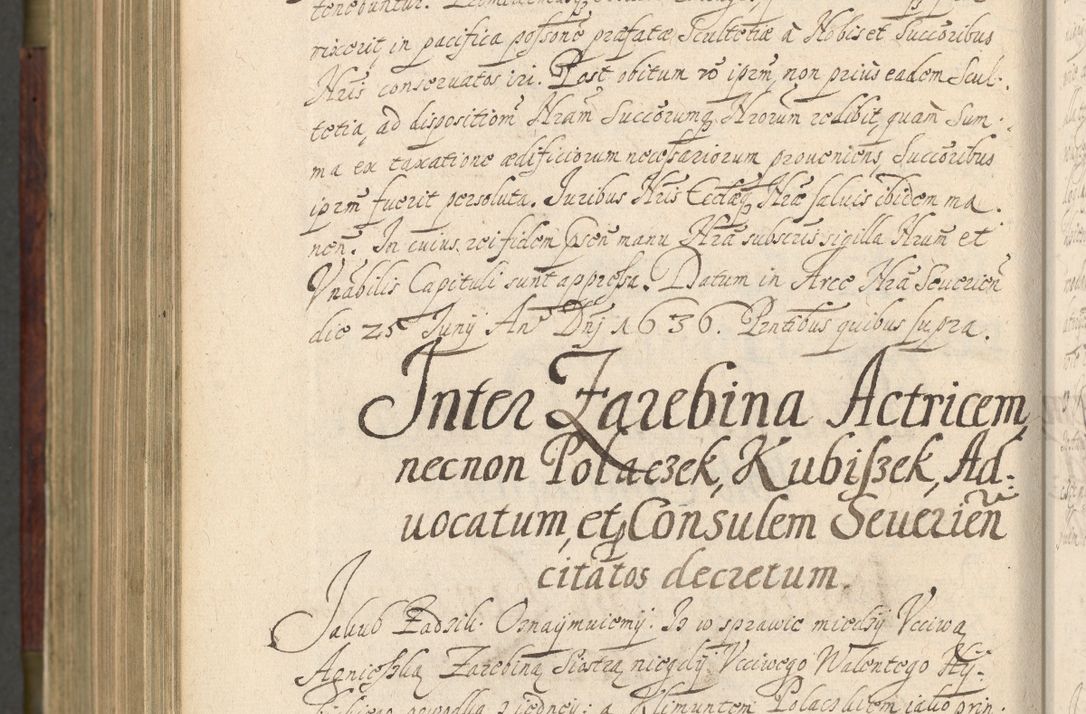 vixerit, in pacifica possone præfatæ Scultetiæ à Nobis et Succoribus
Nris conseruatos iri. Post obitum vo iprm, non prius eadem Scul-
tetia, ad dispositiom Nram Succorumq Nrorum redibit, quam Sum-
ma ex taxatione ædificiorum necessariorum proueniens, Succoribus
iprm fuerit persoluta. Juribus Nris Ecclæq Nræ saluis ibidem ma
nen. In cuius rei fidem psen manu Nra subscris sigilla Nrum et
Vnabilis Capituli sunt appressa. Datum in Arce Nra Seuerien
die 25 Junij An Dnj 1636. Pentibus quibus supra.
Inter Zarebina Actricem,
necnon Polaczek, Kubiszek, Ad-
uocatum, et Consulem Seuerien
citatos decretum.
Jakub Zadzik. Oznaijmuiemij. Iz w sprawie międzij Vcciwą
Agnieszką Zarebiną Siostrą niegdij Vcciwego Walentego
powodką z iedneij: a Klimuntem Polaczkiem iako prin-